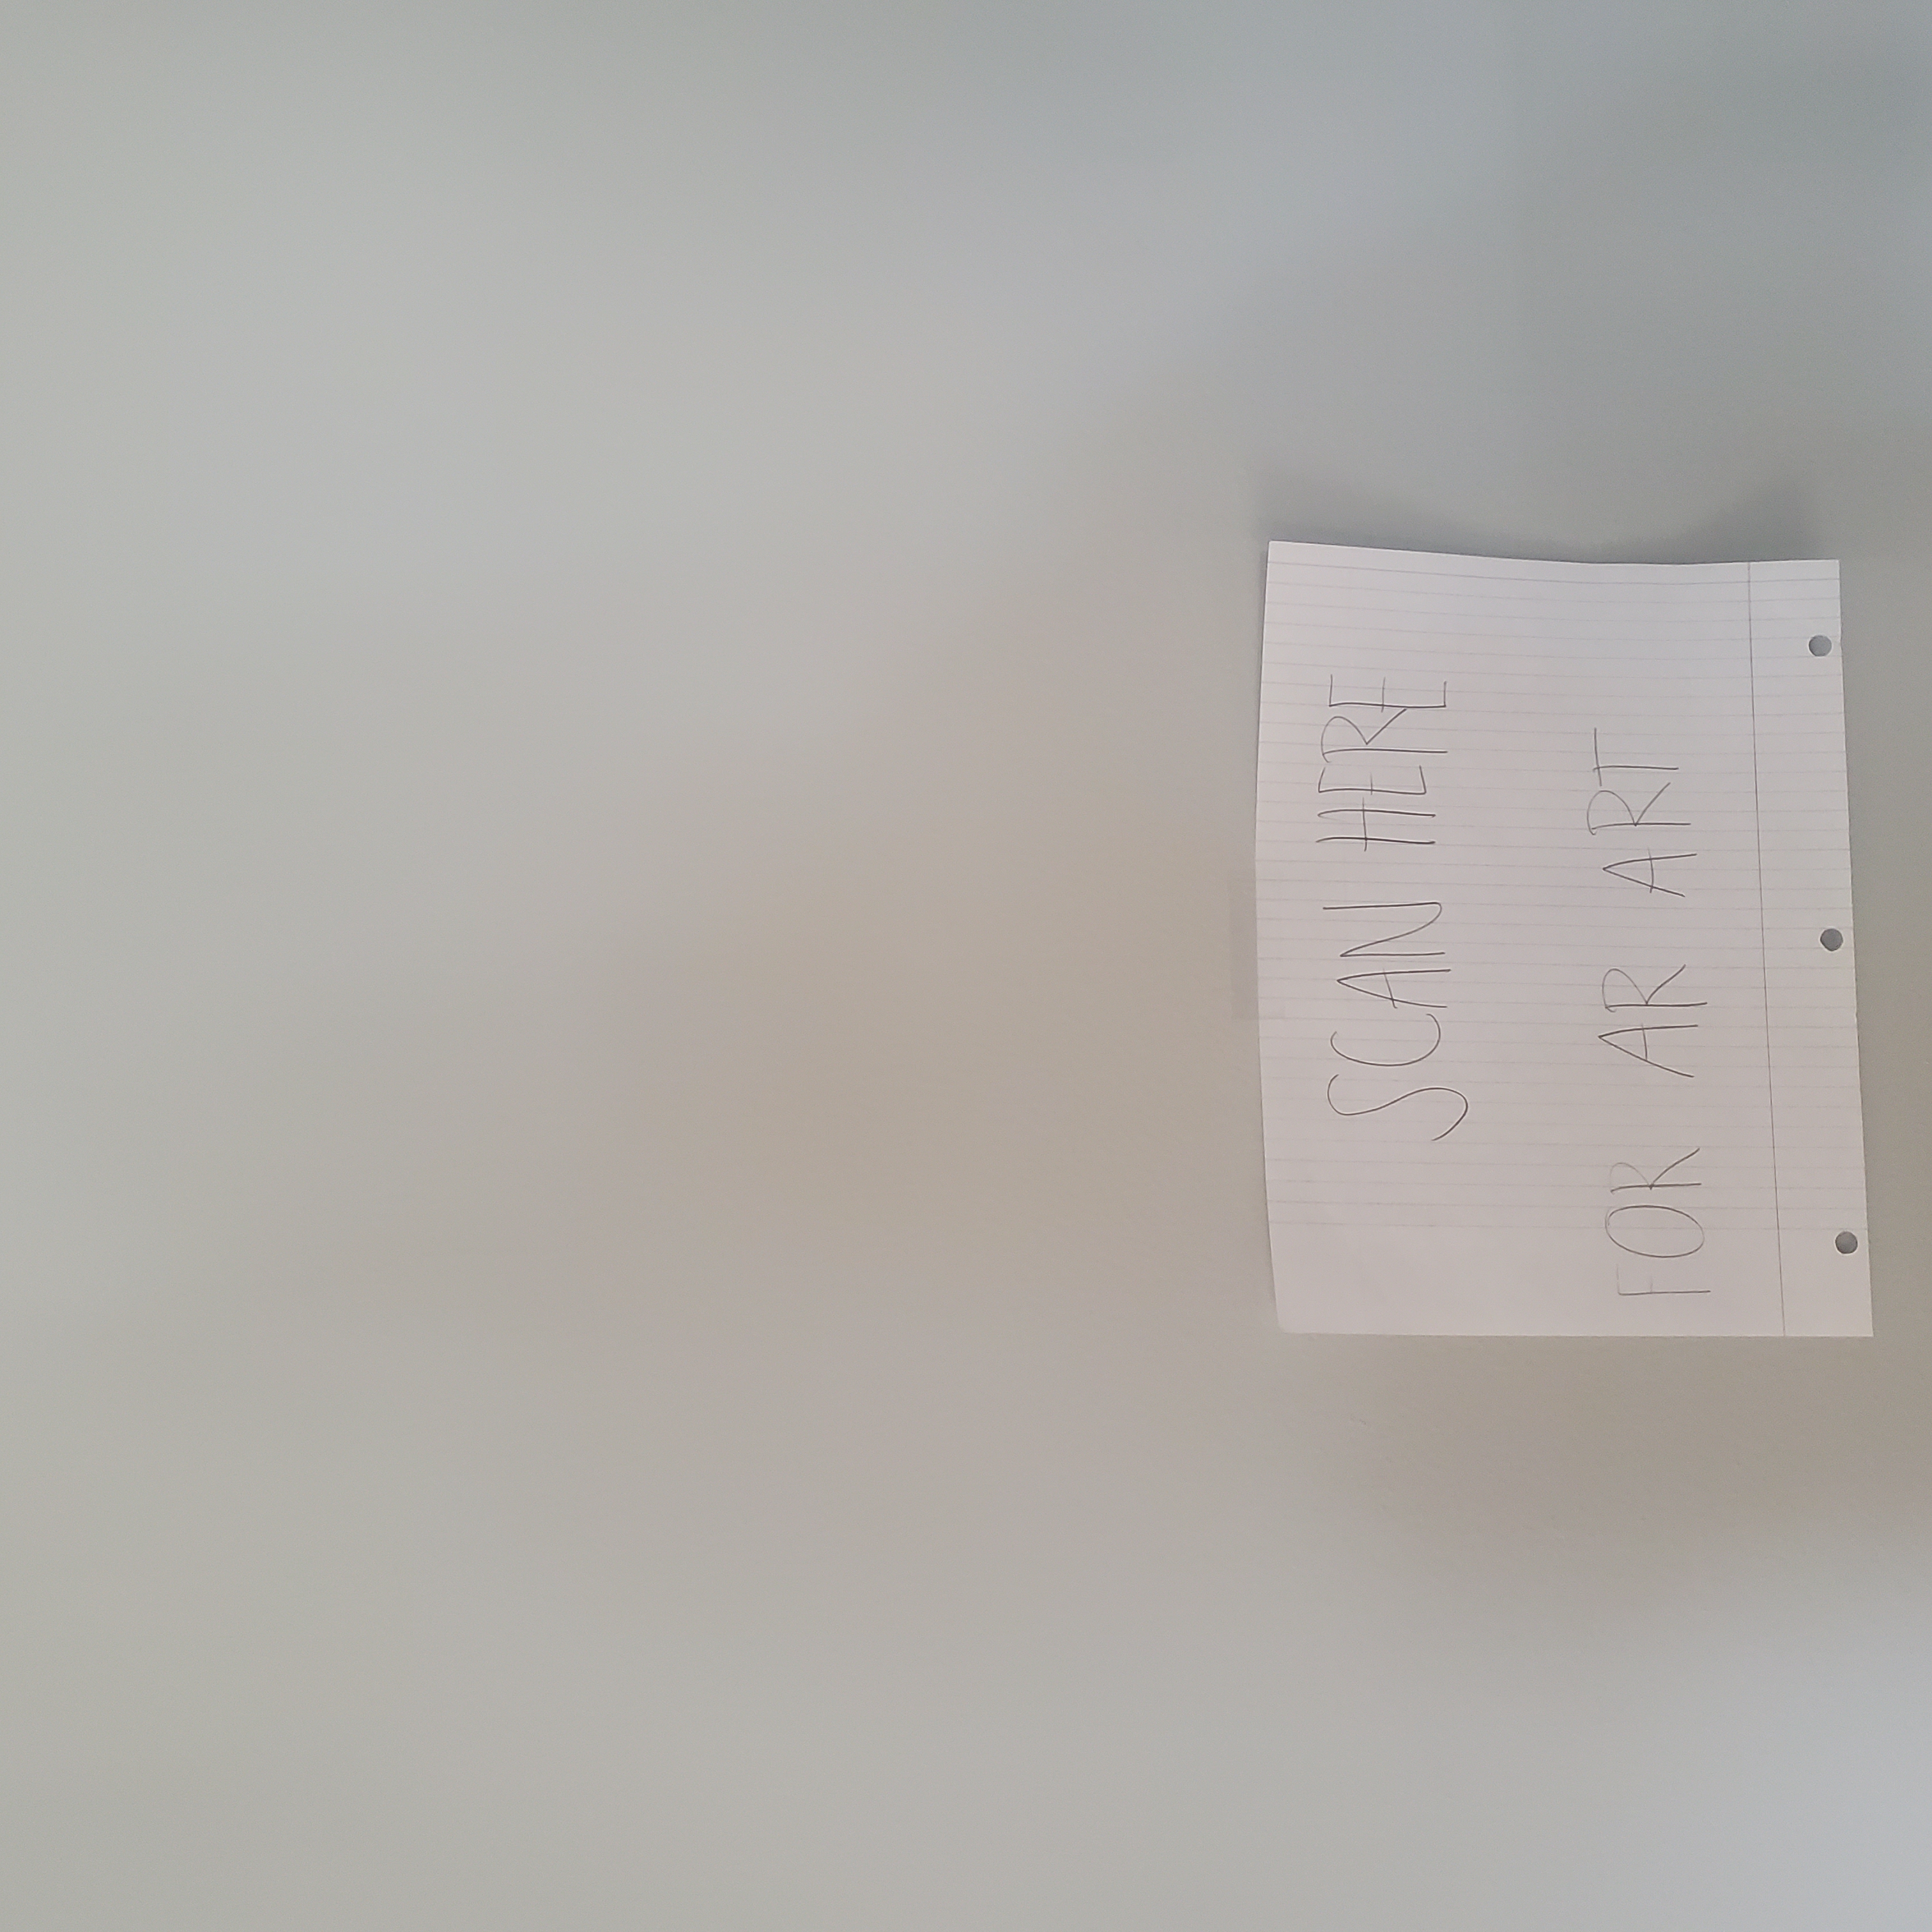 SCAN HERE
FOR AR ART